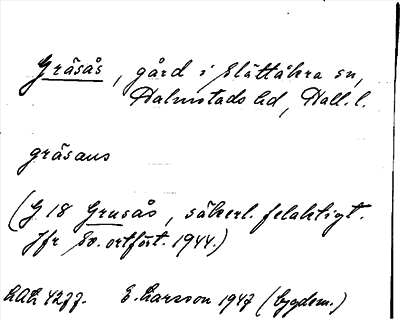 Gräsås, gård i Slättåkra sn,
Halmstads hd, Hall. l.
gräsaus
(G 18 Grusås, säkerl. felaktigt.
Jfr Sv. ortfört. 1944.)
LAL 4277. E. Larsson 1947 (bygdem.)